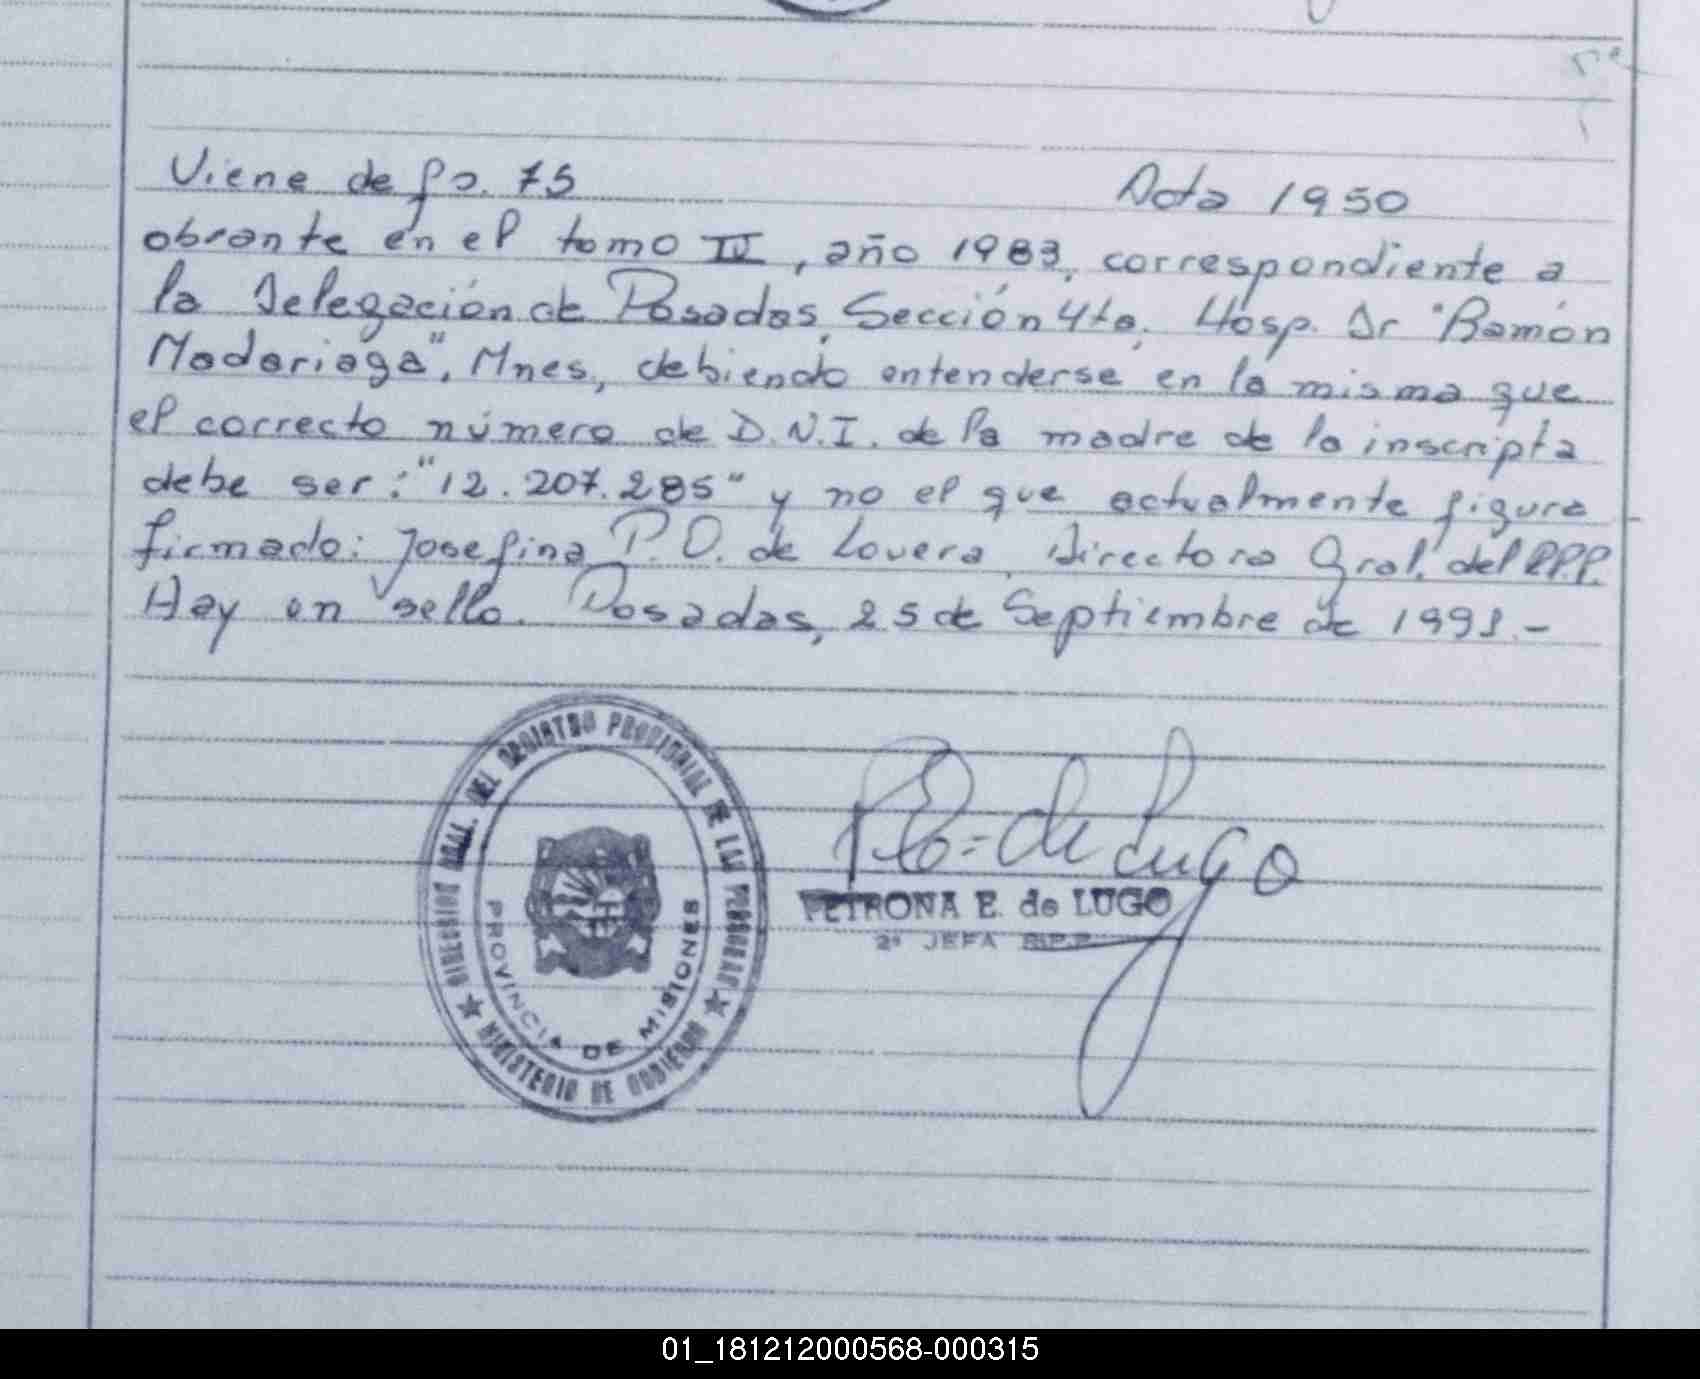 Viene de fo. 75 Acta 1950
obrante en el tomo IV, año 1983, correspondiente a
la Delegación de Posadas, Sección 4ta. Hosp. Dr "Ramón
Madariaga", Mnes, debiendo entenderse en la misma que
el correcto número de D.N.I. de la madre de la inscripta
debe ser: "12.207.285" y no el que actualmente figura
firmado: Josefina P.O. de Lovera, Directora Gral. del R.P.P.
Hay un sello. Posadas, 25 de Septiembre de 1991.-
DIRECCION GRAL. DEL REGISTRO PROVINCIAL DE LAS PERSONAS
MINISTERIO DE GOBIERNO
PROVINCIA DE MISIONES
de Lugo
PETRONA E. de LUGO
2ª JEFA R.P.P.
01_181212000568-000315